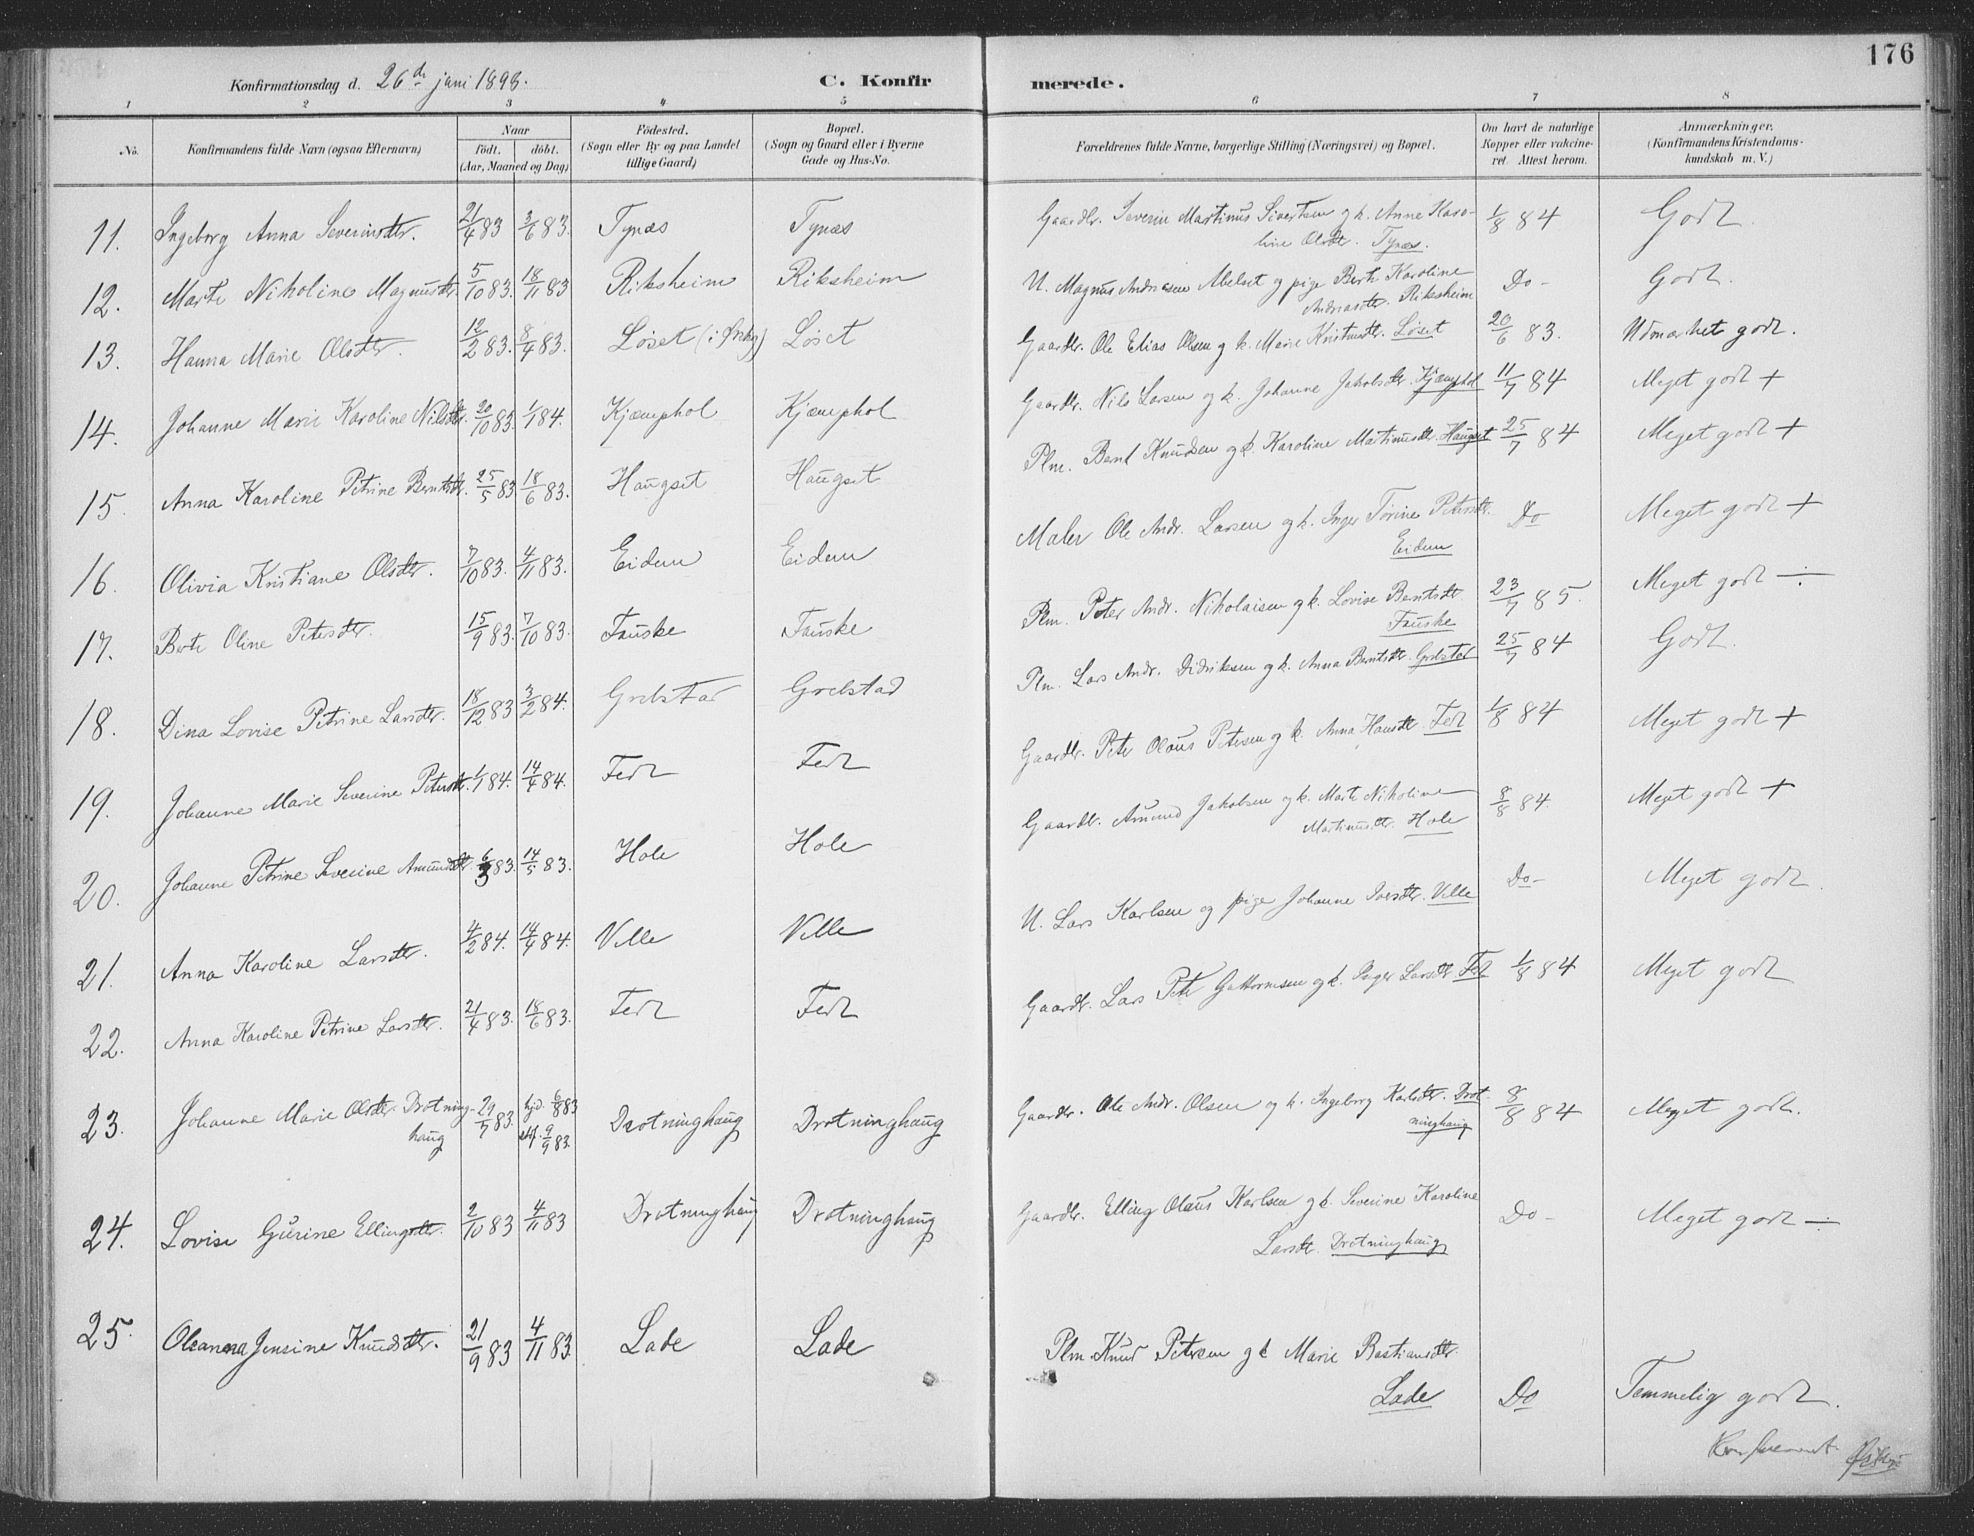 176
Konfirmationsdag d. 26de juni 1898. C. Konfir merede.
1 2 3 4 5 6 7 8
No. Konfirmandens fulde Navn (ogsaa Efternavn) Naar födt. döbt. (Aar, Maaned og Dag) Födested. (Sogn eller By og paa Landet tillige Gaard) Bopæl. (Sogn og Gaard eller i Byerne Gade og Hus-No. Forældrenes fulde Navne, borgerlige Stilling (Næringsvei) og Bopæl. Om havt de naturlige Kopper eller vakcineret. Attest herom. Anmærkninger. (Konfirmandens Kristendomskundskab m. V.)
11. Ingeborg Anna Severinsdtr. 21/4 83 3/6 83. Tynæs Tynæs Gaardbr. Severin Martinus Sivertsen og k. Anne Karo-
line Olsdt. Tynæs. 1/8 84 Godt
12. Marte Nikoline Magnusdtr. 5/10 83. 18/11 83 Riksheim Riksheim U. Magnus Andreasen Melset og pige Berte Karoline
Andreasdtr. Riksheim Do - Godt.
13. Hanna Marie Olsdtr. 12/2 83. 8/4 83. Løset (i Ørskog) Løset Gaardbr. Ole Elias Olsen og k. Marie Knutsdtr. Løset 20/6 83. Udmærket godt.
14. Johanne Marie Karoline Nilsdtr. 20/10 83. 1/1 84. Kjæmphol Kjæmphol Gaardbr. Nils Larsen og k. Johanne Jakobsdtr. Kjæmphol 11/7 84 Meget godt +
15. Anna Karoline Petrine Berntsdtr. 25/5 83 18/6 83. Haugset Haugset Plm. Bernt Knudsen og k. Karoline Martinusdtr. Haugset 25/7 84 Meget godt +
16. Olivia Kristiane Olsdtr. 7/10 83. 4/11 83. Eidem Eidem Maler Ole Andr. Larsen og k. Inger Torine Petersdtr.
Eidem Do Meget godt +
17. Berte Oline Petersdtr. 15/9 83. 7/10 83. Fauske Fauske Plm. Peter Andr. Nikolaisen og k. Lovise Berntsdtr.
Fauske 23/7 85. Meget godt ÷
18. Dina Lovise Petrine Larsdtr. 18/12 83 3/2 84. Grebstad Grebstad Plm. Lars Andr. Didriksen og k. Anna Berntsdtr. Grebstad 25/7 84 Godt.
19. Johanne Marie Severine Petersdtr. 1/1 84. 14/4 84. Fedt Fedt Gaardbr. Peter Olaus Petersen og k. Anna Hansdtr. Fedt 1/8 84 Meget godt +
20. Johanne Petrine Severine Amundsdtr. 6/3 83. 14/5 83. Hole Hole Gaardbr. Amund Jakobsen og k. Marte Nikoline
Martinusdtr. Hole 8/8 84 Meget godt +
21. Anna Karoline Larsdtr. 4/2 84. 14/4 84. Velle Velle U. Lars Karlsen og pige Johanne Iversdtr. Velle Do - Meget godt.
22. Anna Karoline Petrine Larsdtr. 21/4 83. 18/6 83. Fedt Fedt Gaardbr. Lars Peter Guttormsen og k. Inger Larsdtr. Fedt 1/8 84 Meget godt
23. Johanne Marie Olsdtr. Drotning-
haug 29/7 83. hjd. 6/8 83
stf. 9/9 83. Drotninghaug Drotninghaug Gaardbr. Ole Andr. Olsen og k. Ingeborg Karlsdtr. Drot-
ninghaug 8/8 84 Meget godt.
24. Lovise Gurine Ellingsdtr. 2/10 83 4/11 83 Drotninghaug Drotninghaug Gaardbr. Elling Olaus Karlsen og k. Severine Karoline
Larsdt. Drotninghaug Do - Meget godt ÷
25. Oleanna Jensine Knudsdtr. 21/9 83 4/11 83 Lade Lade Plm. Knud Petersen og k Marie Bastiansdtr.
Lade Do Temmelig godt.